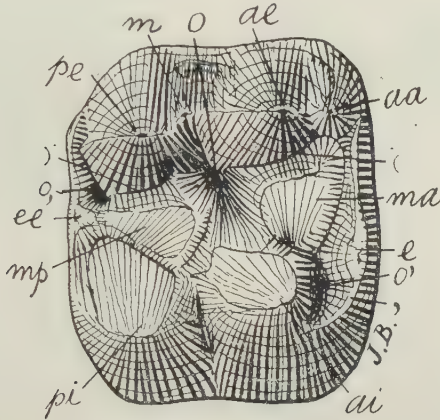 m o ae
pe aa
) (
o, ma
ee,
mp e
o'
J.B.'
pi ai